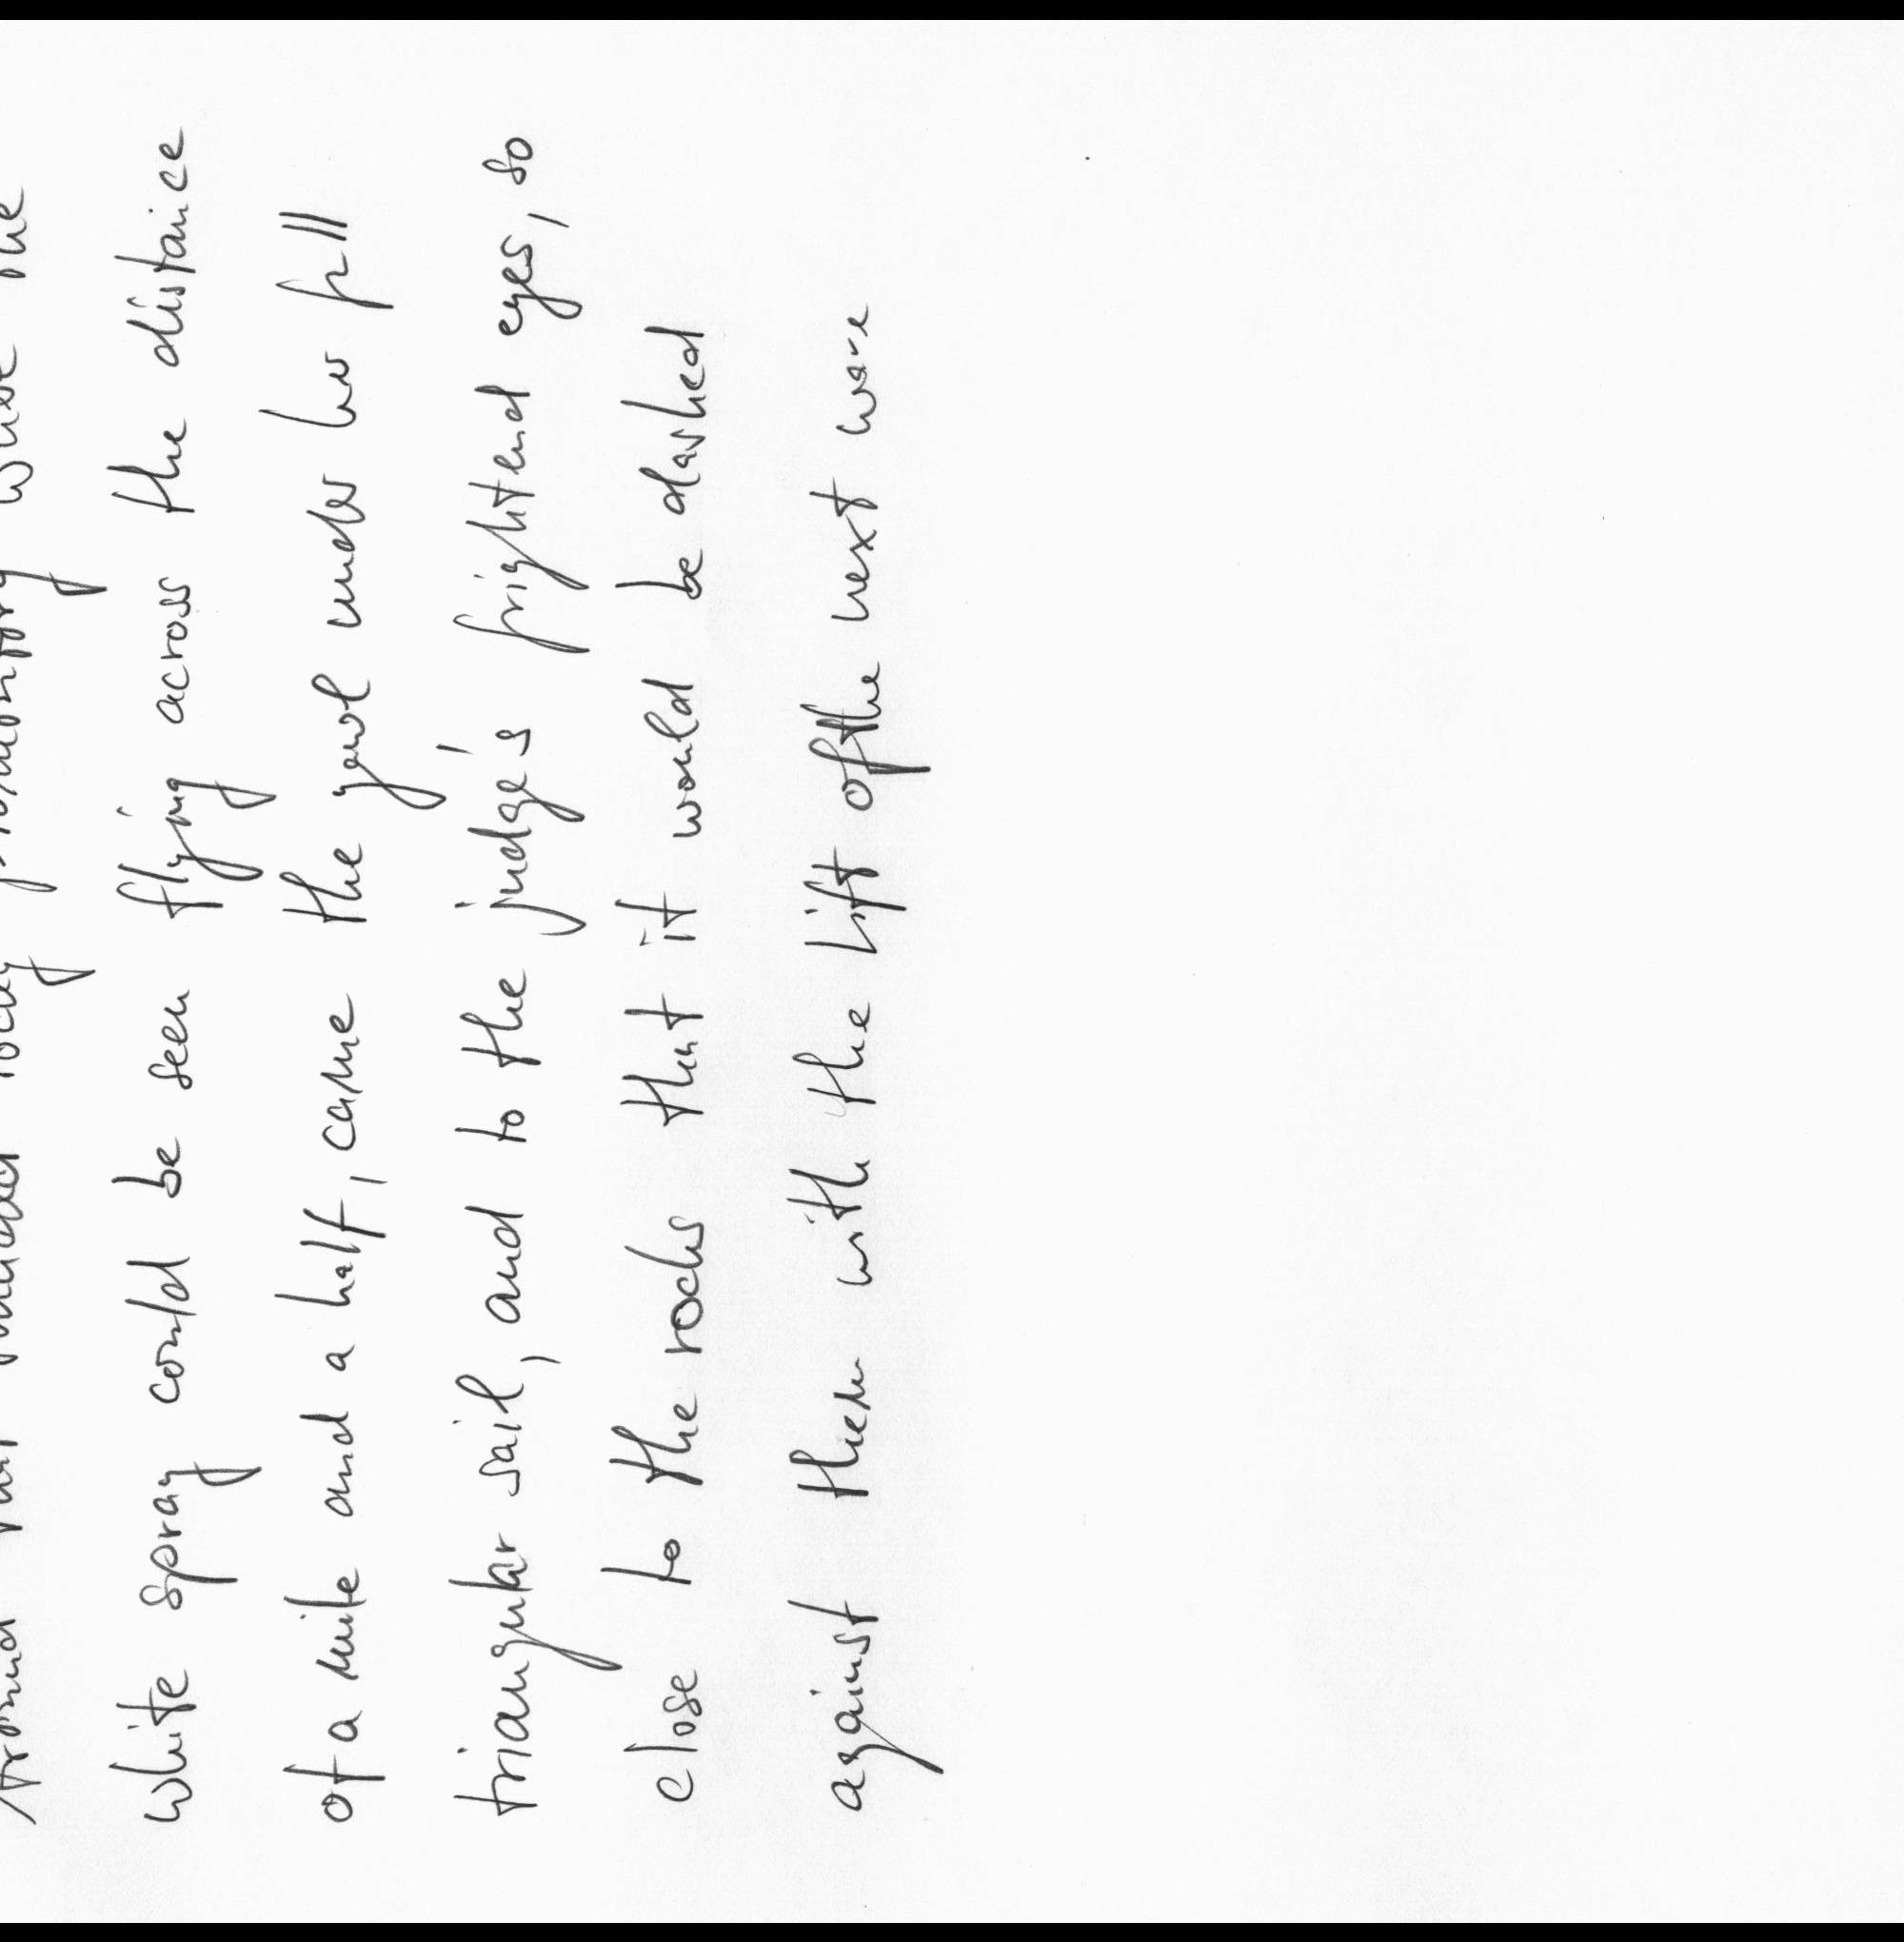 Around that rocky promontory where the
white spray could be seen flying across the distance
of a mile and a half, came the yawl under her full
triangular sail, and to the judge's frightend eyes, so
close to the rocks that it would be dashed
against them with the lift of the next wave